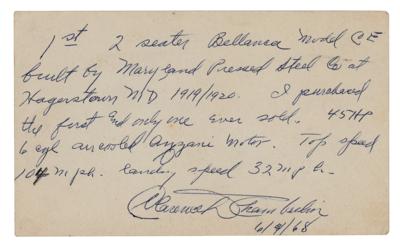 1st 2 seater Bellanca Model CE
built by Maryland Pressed Steel Co at
Hagerstown MD 1919/1920. I purchased
the first and only one ever sold. 45HP
6 cyl aircooled Anzani Motor. Top speed
104 mph. landing speed 32 mph.
Clarence Chamberlin
6/9/68